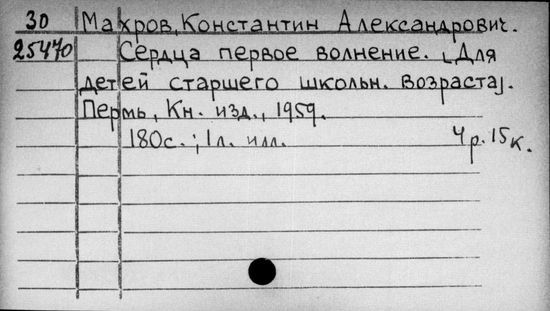 30 Махров, Константин Александрович.
25470 Сердца первое волнение. [Для
детей старшего школьн. возраста].
Пермь, Кн. изд., 1959.
180с.; 1л. илл. 4р. 15к.